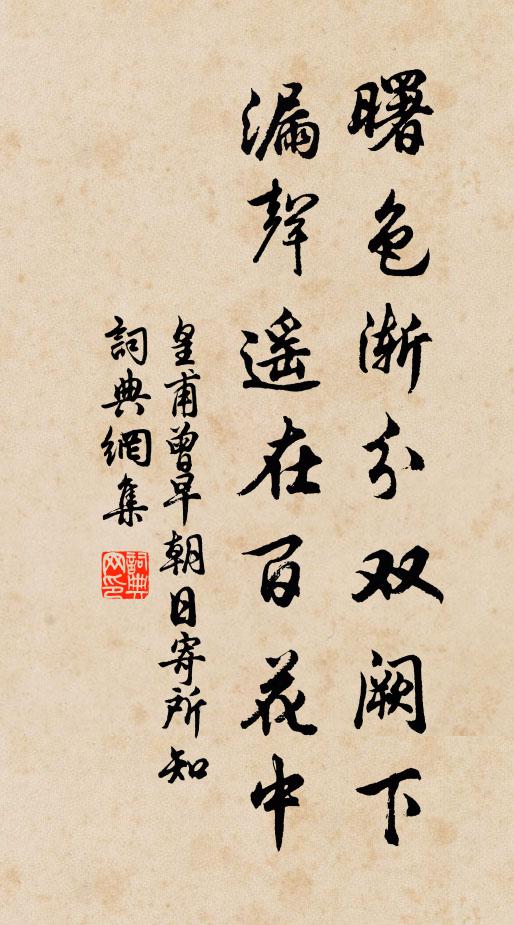 曙色漸分双闕下
漏聲遥在百花中
皇甫曾早朝日寄所知
詞典網集
詞典网印